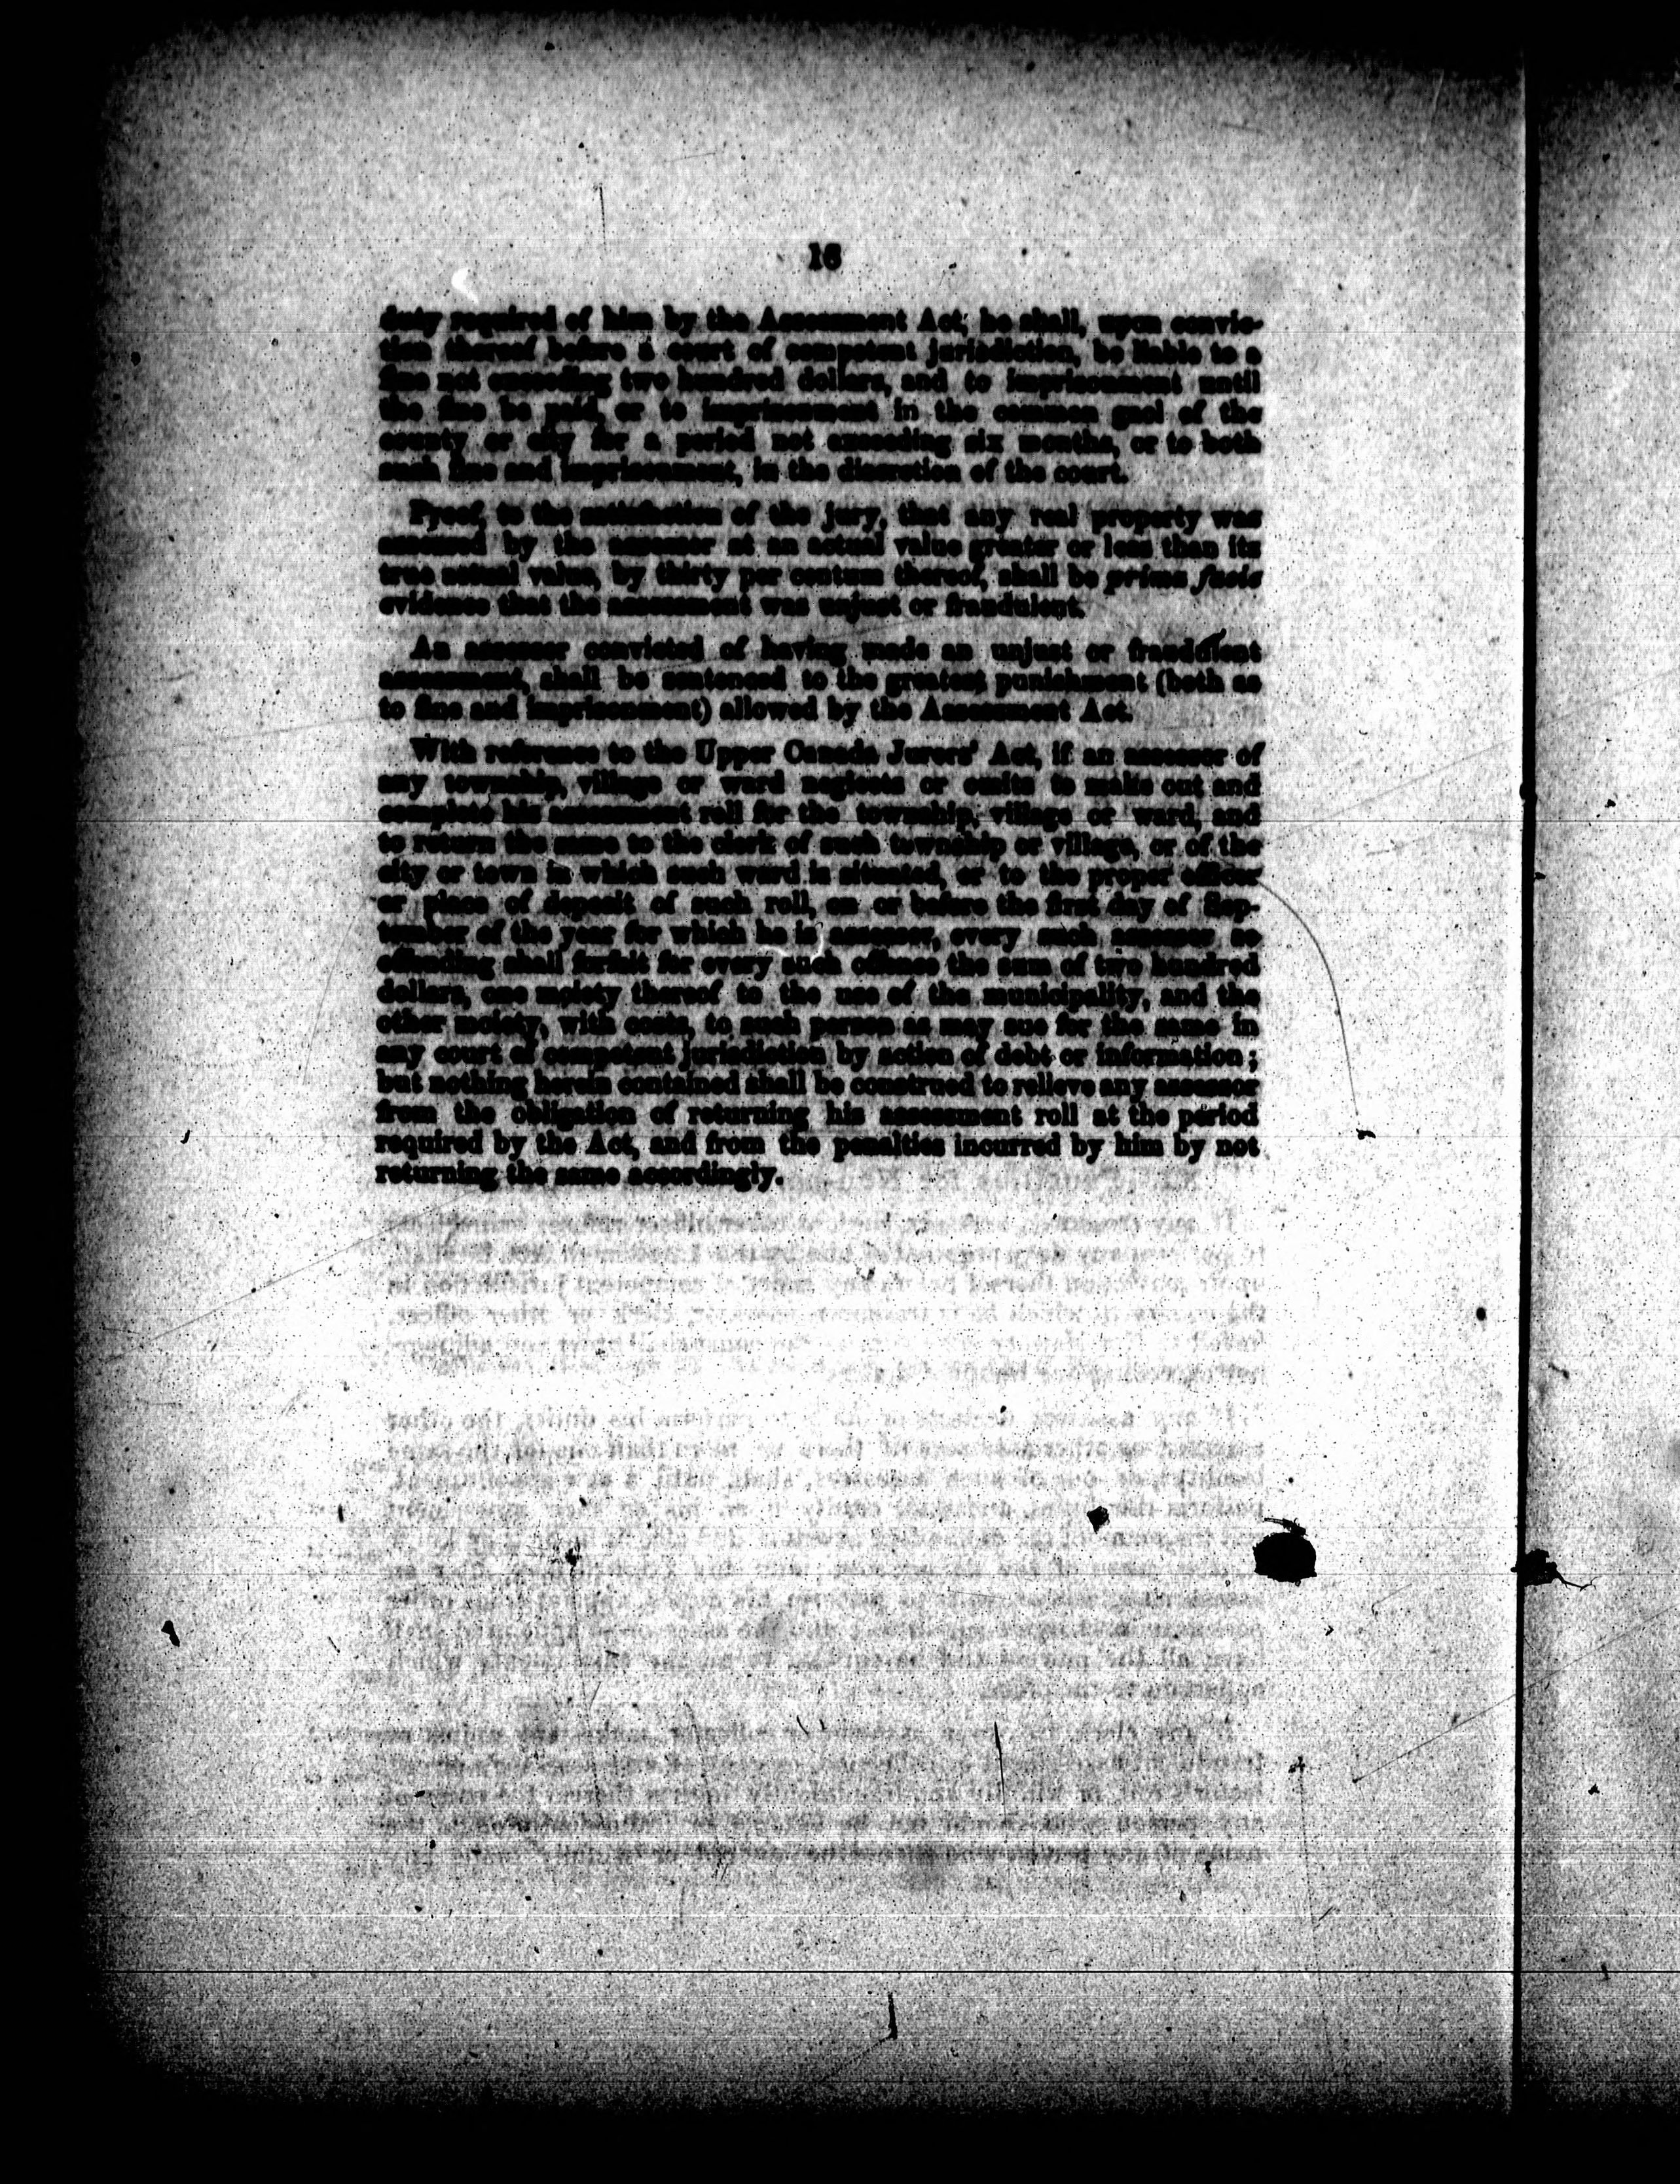 16
duty required of him by the Assessment Act, he shall, upon convic-
tion thereof before a court of competent jurisdiction, be liable to a
fine not exceeding two hundred dollars, and to imprisonment until
the fine be paid, or to imprisonment in the common gaol of the
county or city for a period not exceeding six months, or to both
such fine and imprisonment, in the discretion of the court.
Proof, to the satisfaction of the jury, that any real property was
assessed by the assessor at an actual value greater or less than its
true actual value, by thirty per centum thereof, shall be prima facie
evidence that the assessment was unjust or fraudulent.
An assessor convicted of having made an unjust or fraudulent
assessment, shall be sentenced to the greatest punishment (both as
to fine and imprisonment) allowed by the Assessment Act.
With reference to the Upper Canada Jurors' Act, if an assessor of
any township, village or ward neglects or omits to make out and
complete his assessment roll for the township, village or ward, and
to return the same to the clerk of such township or village, or of the
city or town in which such ward is situated, or to the proper officer
or place of deposit of such roll, on or before the first day of Sep-
tember of the year for which he is assessor, every such assessor so
offending shall forfeit for every such offence the sum of two hundred
dollars, one moiety thereof to the use of the municipality, and the
other moiety, with costs, to such person as may sue for the same in
any court of competent jurisdiction by action of debt or information;
but nothing herein contained shall be construed to relieve any assessor
from the obligation of returning his assessment roll at the period
required by the Act, and from the penalties incurred by him by not
returning the same accordingly.